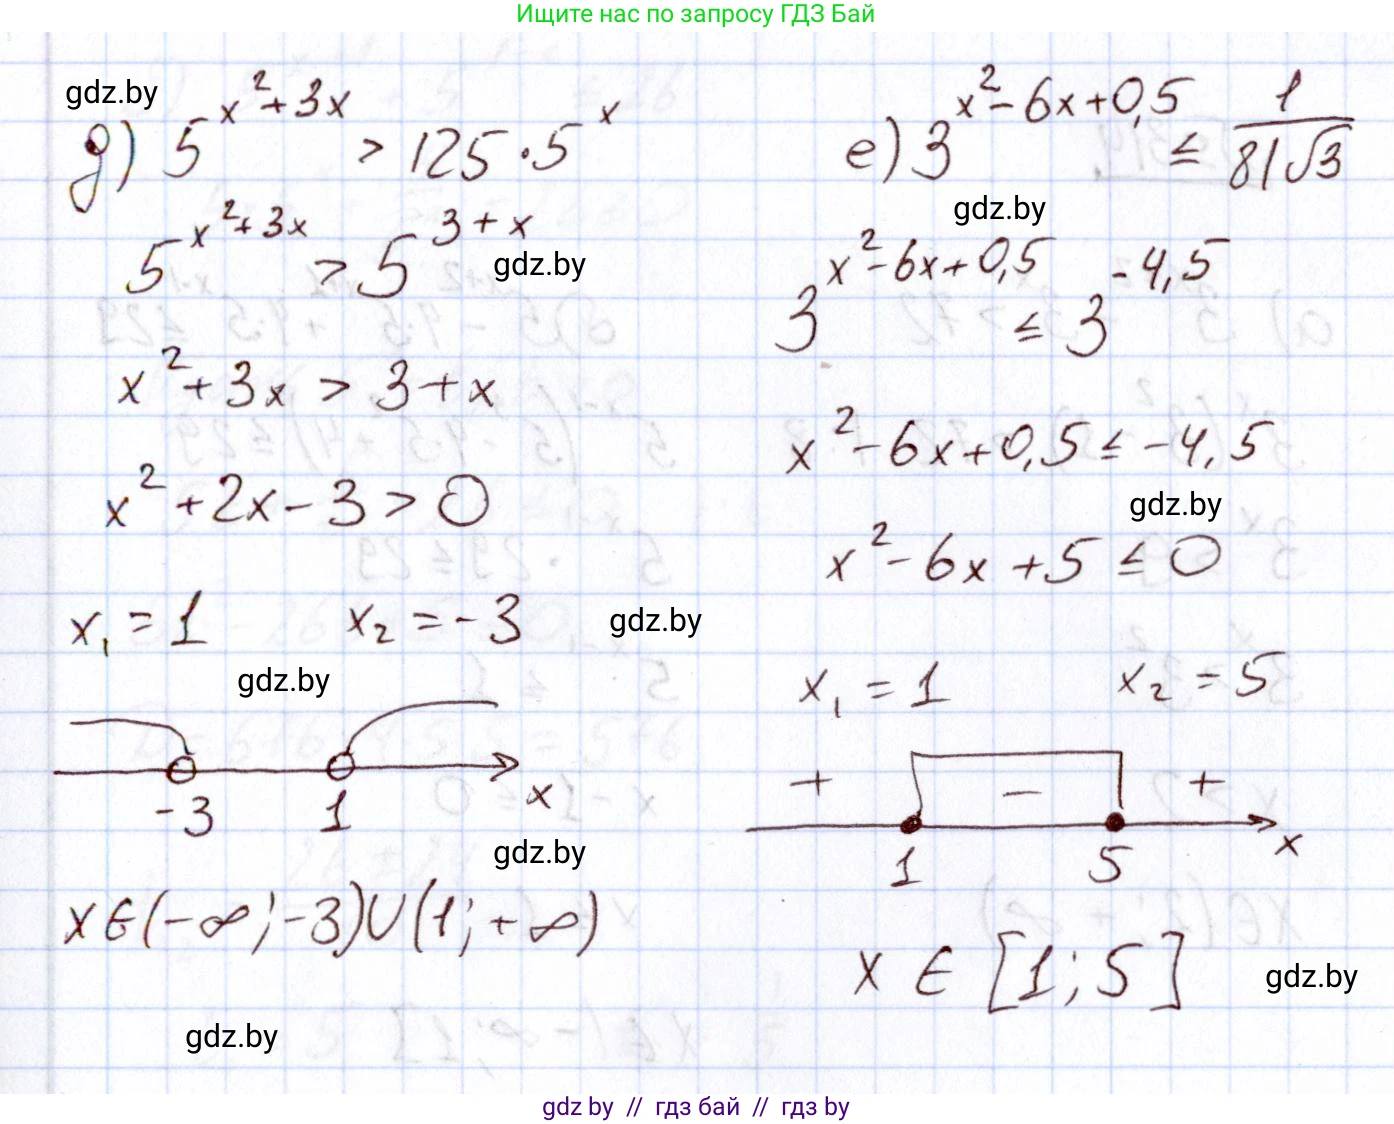 Ищите нас по запросу ГДЗ Бай
gdz.by
д) 5^(x²+3x) > 125·5^x
5^(x²+3x) > 5^(3+x)
gdz.by
x²+3x > 3+x
x²+2x-3 > 0
x₁ = 1 x₂ = -3
gdz.by
gdz.by
-3 1 x
gdz.by
x∈(-∞;-3)∪(1;+∞)
gdz.by
е) 3^(x²-6x+0,5) ≤ 1/(81√3)
gdz.by
3^(x²-6x+0,5) ≤ 3^(-4,5)
x²-6x+0,5 ≤ -4,5
gdz.by
x²-6x+5 ≤ 0
x₁ = 1 x₂ = 5
+ − +
1 5 x
x ∈ [1;5]
gdz.by
gdz by // гдз бай // гдз by